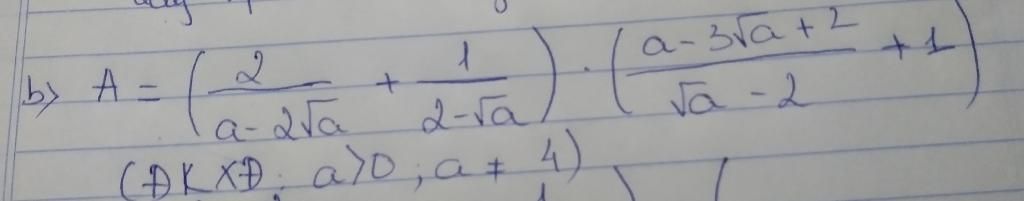 b) A = (2/(a-2√a) + 1/(2-√a)) . ((a-3√a+2)/(√a-2) + 1)
(ĐKXĐ: a>0; a≠4)